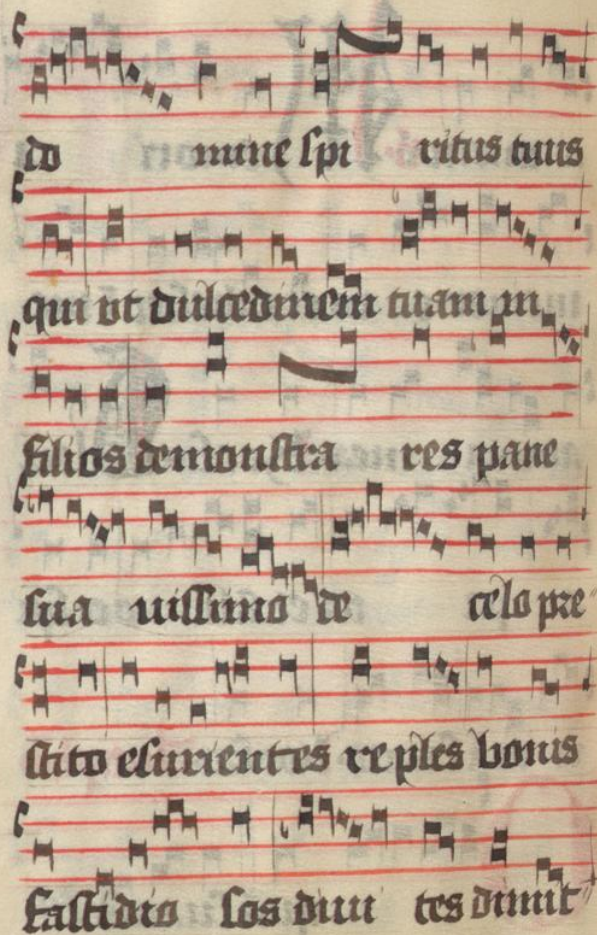 do mine spi ritus tuus
qui vt dulcedinem tuam in
filios demonstra res pane
sua uissimo de celo pre
stito esurientes reples bonis
fastidio sos diui tes dimit